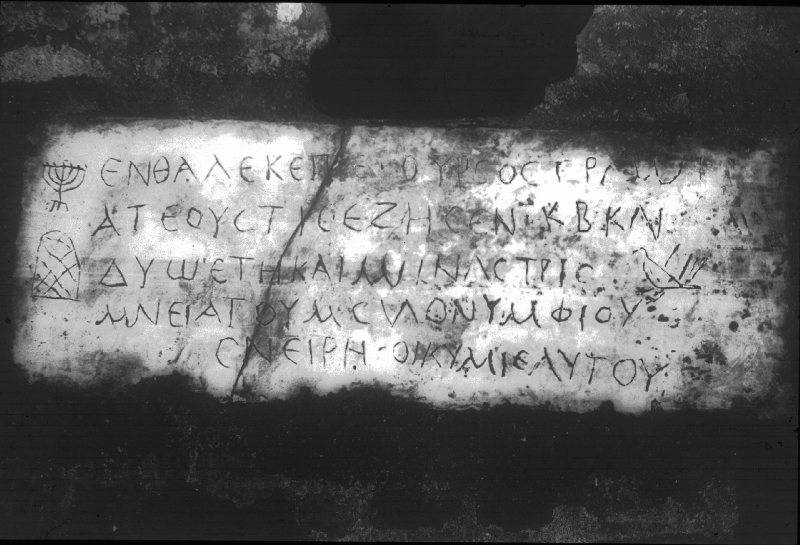 ΕΝΘΑΔΕΚΕΙΤΕ ΟΥΡΣΟϹ ΓΡΑΜΜ
ΑΤΕΟΥϹΤΙϹΕΖΗϹΕΝΙΚΒΚΑΙ
ΔΥШΕΤΗΚΑΙΜШΙΝΑϹΤΡΙϹ
ΜΝΕΙΑΤΟΥΜϹΥΛΟΝΥΜΦΙΟΥ
ΕΝΕΙΡΗ ΟΙΚΥΜΙϹΑΥΤΟΥ